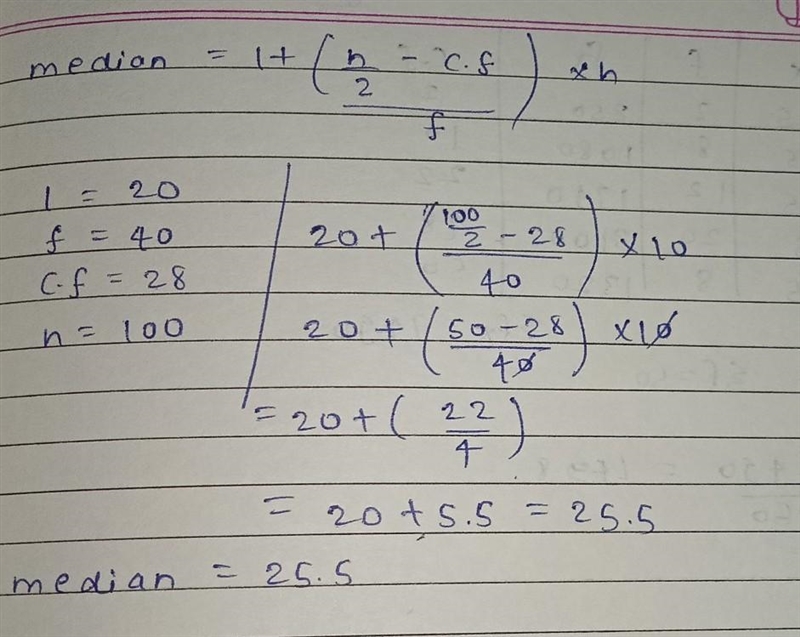 median = l + ( n/2 - c.f / f ) × h
l = 20
f = 40
c.f = 28
n = 100
20 + ( 100/2 - 28 / 40 ) × 10
20 + ( 50 - 28 / 40 ) × 10
= 20 + ( 22/4 )
= 20 + 5.5 = 25.5
median = 25.5